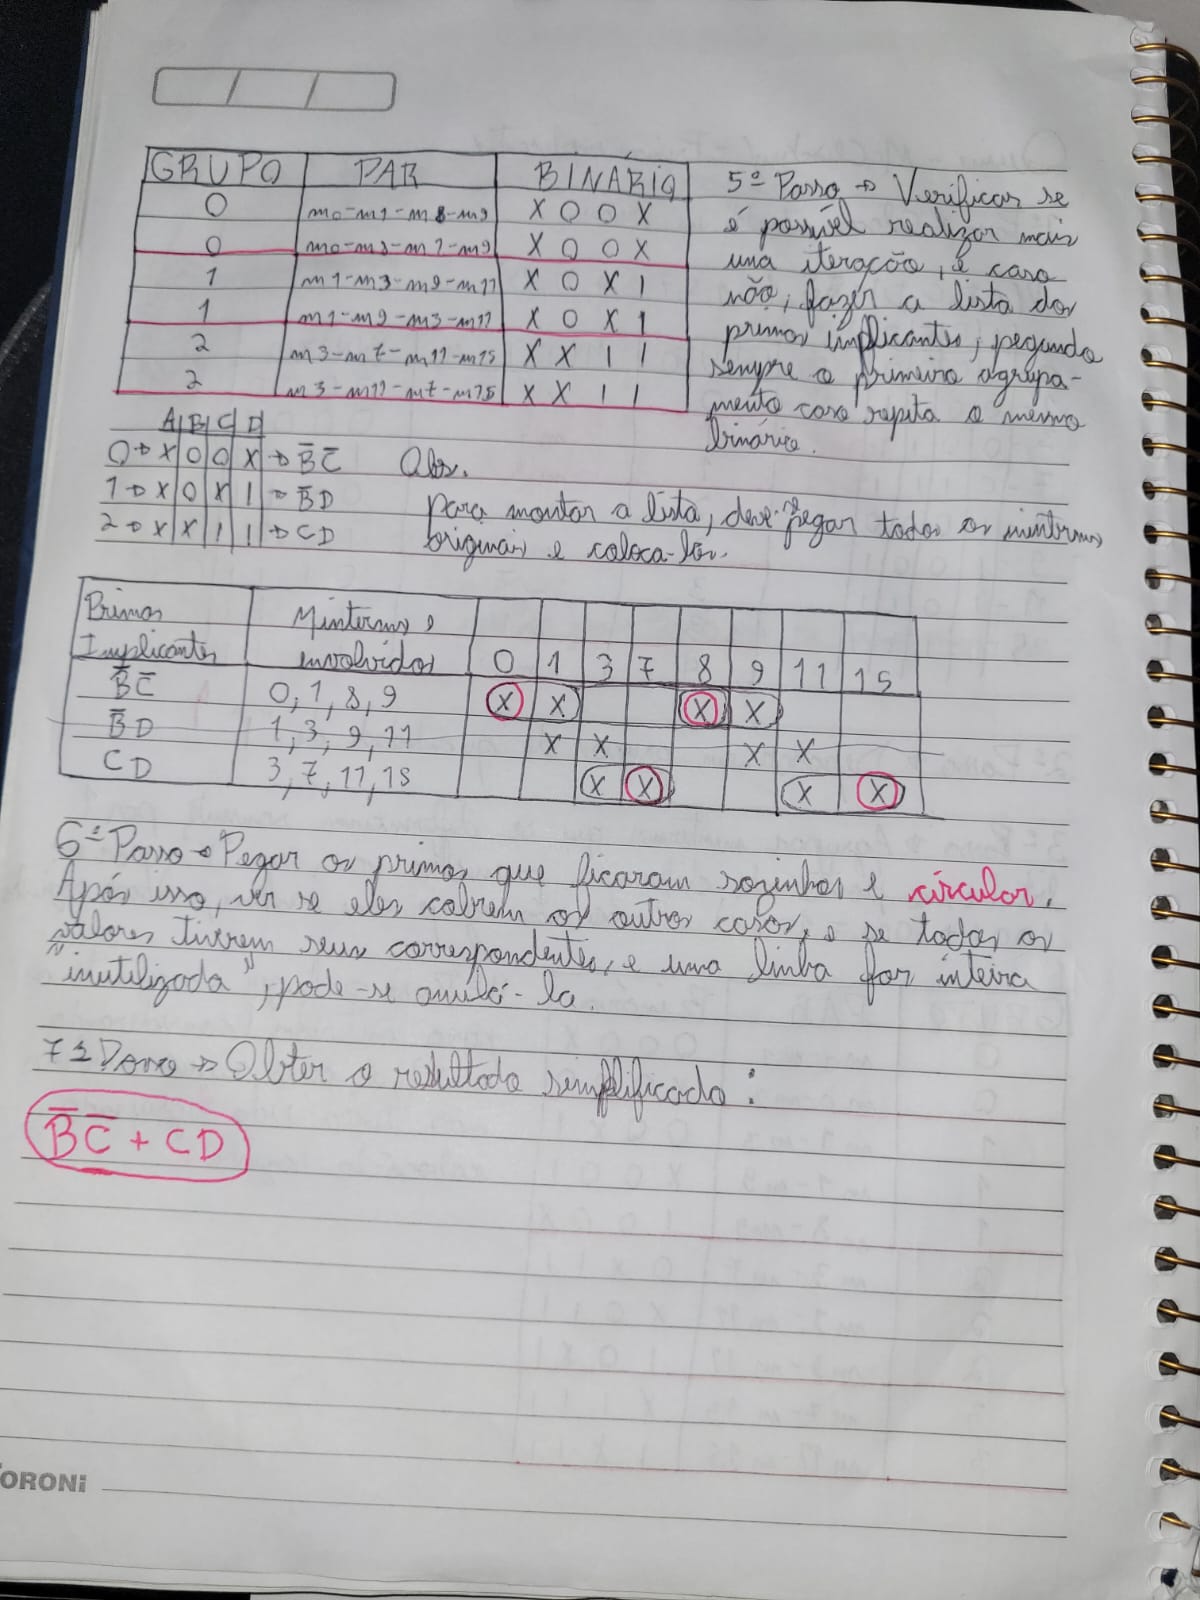 GRUPO PAR BINÁRIO
0 m0-m1-m8-m9 X 0 0 X
0 m0-m8-m1-m9 X 0 0 X
1 m1-m3-m9-m11 X 0 X 1
1 m1-m9-m3-m11 X 0 X 1
2 m3-m7-m11-m15 X X 1 1
2 m3-m11-m7-m15 X X 1 1
5º Passo → Verificar se
é possível realizar mais
uma iteração, e caso
não, fazer a lista dos
primos implicantes, pegando
sempre o primeiro agrupa-
mento caso repita o mesmo
binário.
A B C D
0 → X 0 0 X → B̅ C̅
1 → X 0 X 1 → B̅ D
2 → X X 1 1 → C D
Obs.
para montar a lista, deve-se pegar todos os mintermos
originais e coloca-los.
Primos Implicantes Mintermos envolvidos 0 1 3 7 8 9 11 15
B̅ C̅ 0, 1, 8, 9 X X X X
B̅ D 1, 3, 9, 11 X X X X
C D 3, 7, 11, 15 X X X X
6º Passo → Pegar os primos que ficaram sozinhos e circular.
Após isso, ver se eles cobrem os outros casos, e se todos os
valores tiverem seus correspondentes, e uma linha for inteira
"inutilizada", pode-se anulá-la.
7º Passo → Obter o resultado simplificado:
B̅ C̅ + C D
FORONI